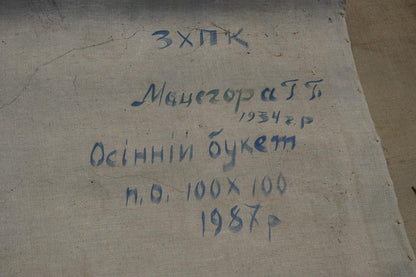 ЗХПК
Мацегора Г Г.
1934 г.р
Осінній букет
п.о. 100Х100
1987р